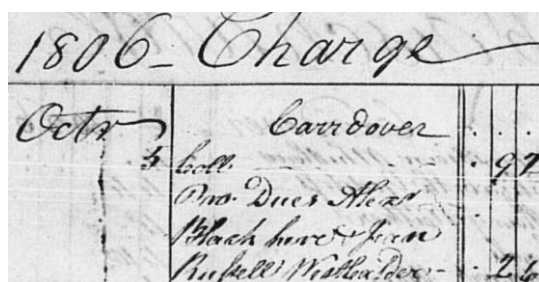 1806 - Charge
Octr Carrdover . . .
5 Coll - . 9 2
Pro. Dues Alexr
Black here & Jean
Russell Westcalder - . 2 6